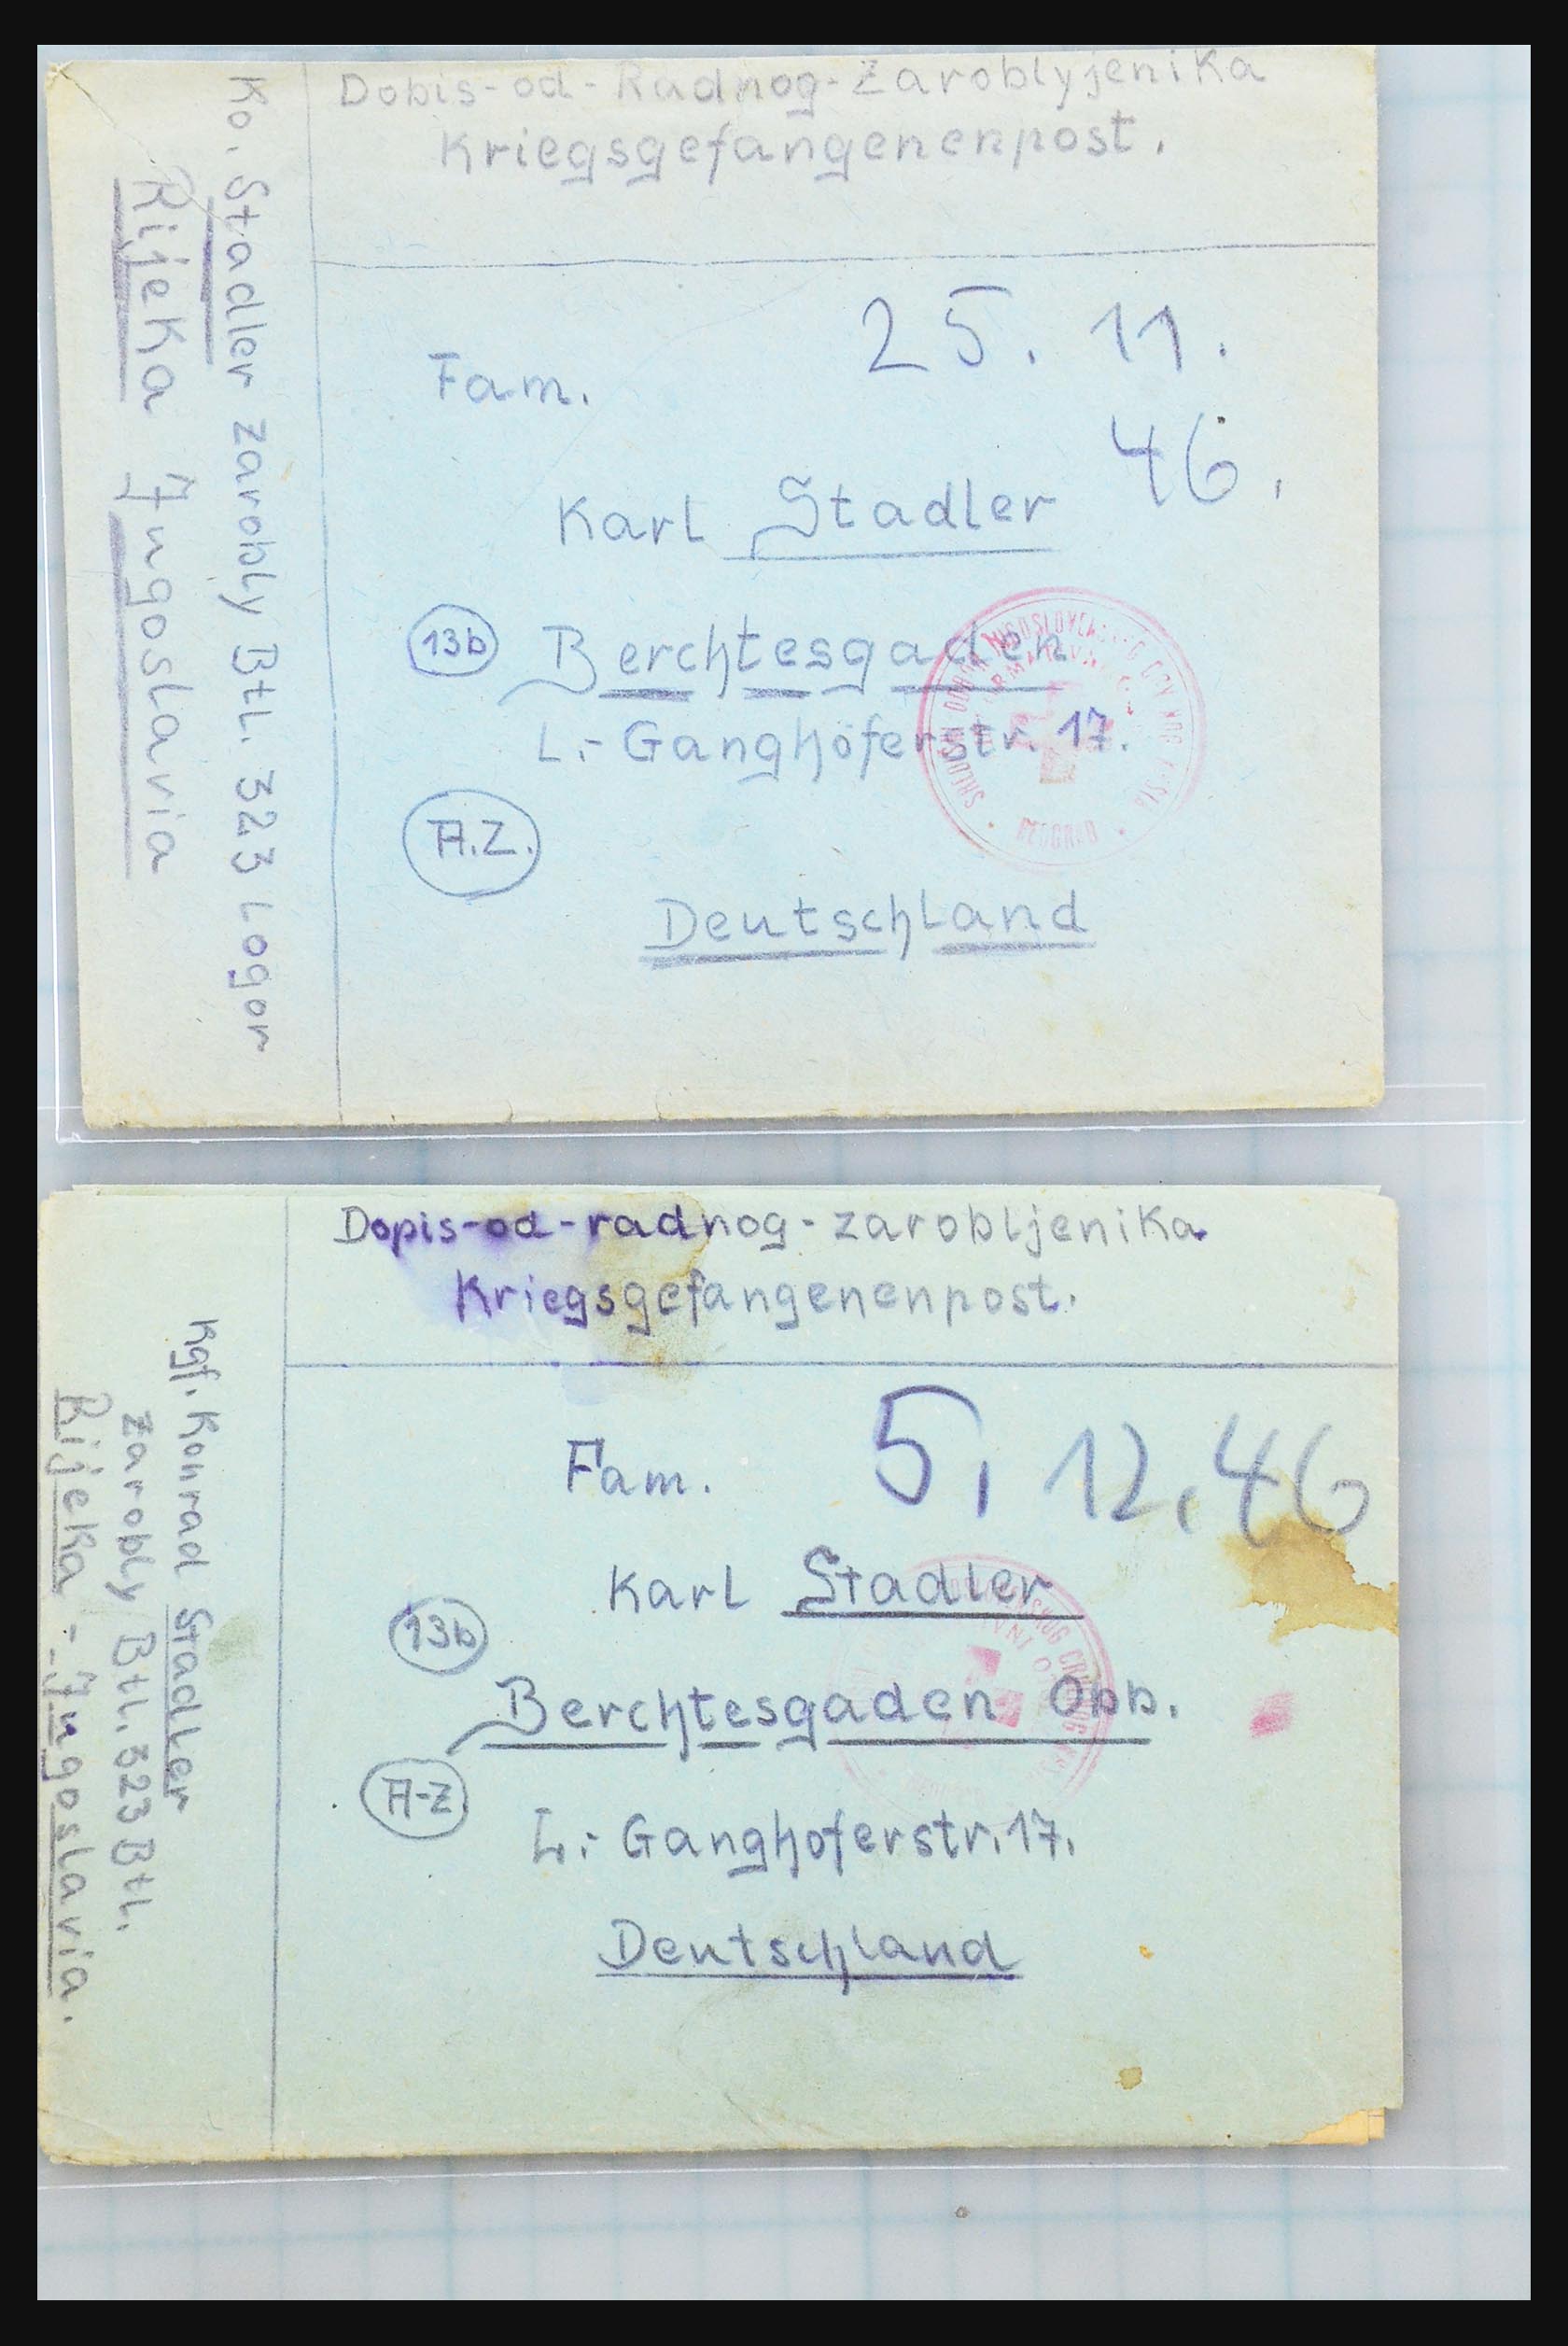 Dobis-od-Radnog-Zaroblyjenika
Kriegsgefangenenpost.
Ko. Stadler zarobly Btl. 323 Logor
Rijeka Jugoslavia
25. 11.
46.
Fam.
Karl Stadler
13b Berchtesgaden
L.- Ganghöferstr. 17.
A.Z.
Deutschland
BEOGRAD
Dopis-od-radnog-zarobljenika
Kriegsgefangenenpost.
Kgf. Konrad Stadler
zarobly Btl. 323 Btl.
Rijeka - Jugoslavia.
Fam. 5, 12, 46
Karl Stadler
13b
Berchtesgaden Obb.
A-Z
L.- Ganghoferstr. 17.
Deutschland